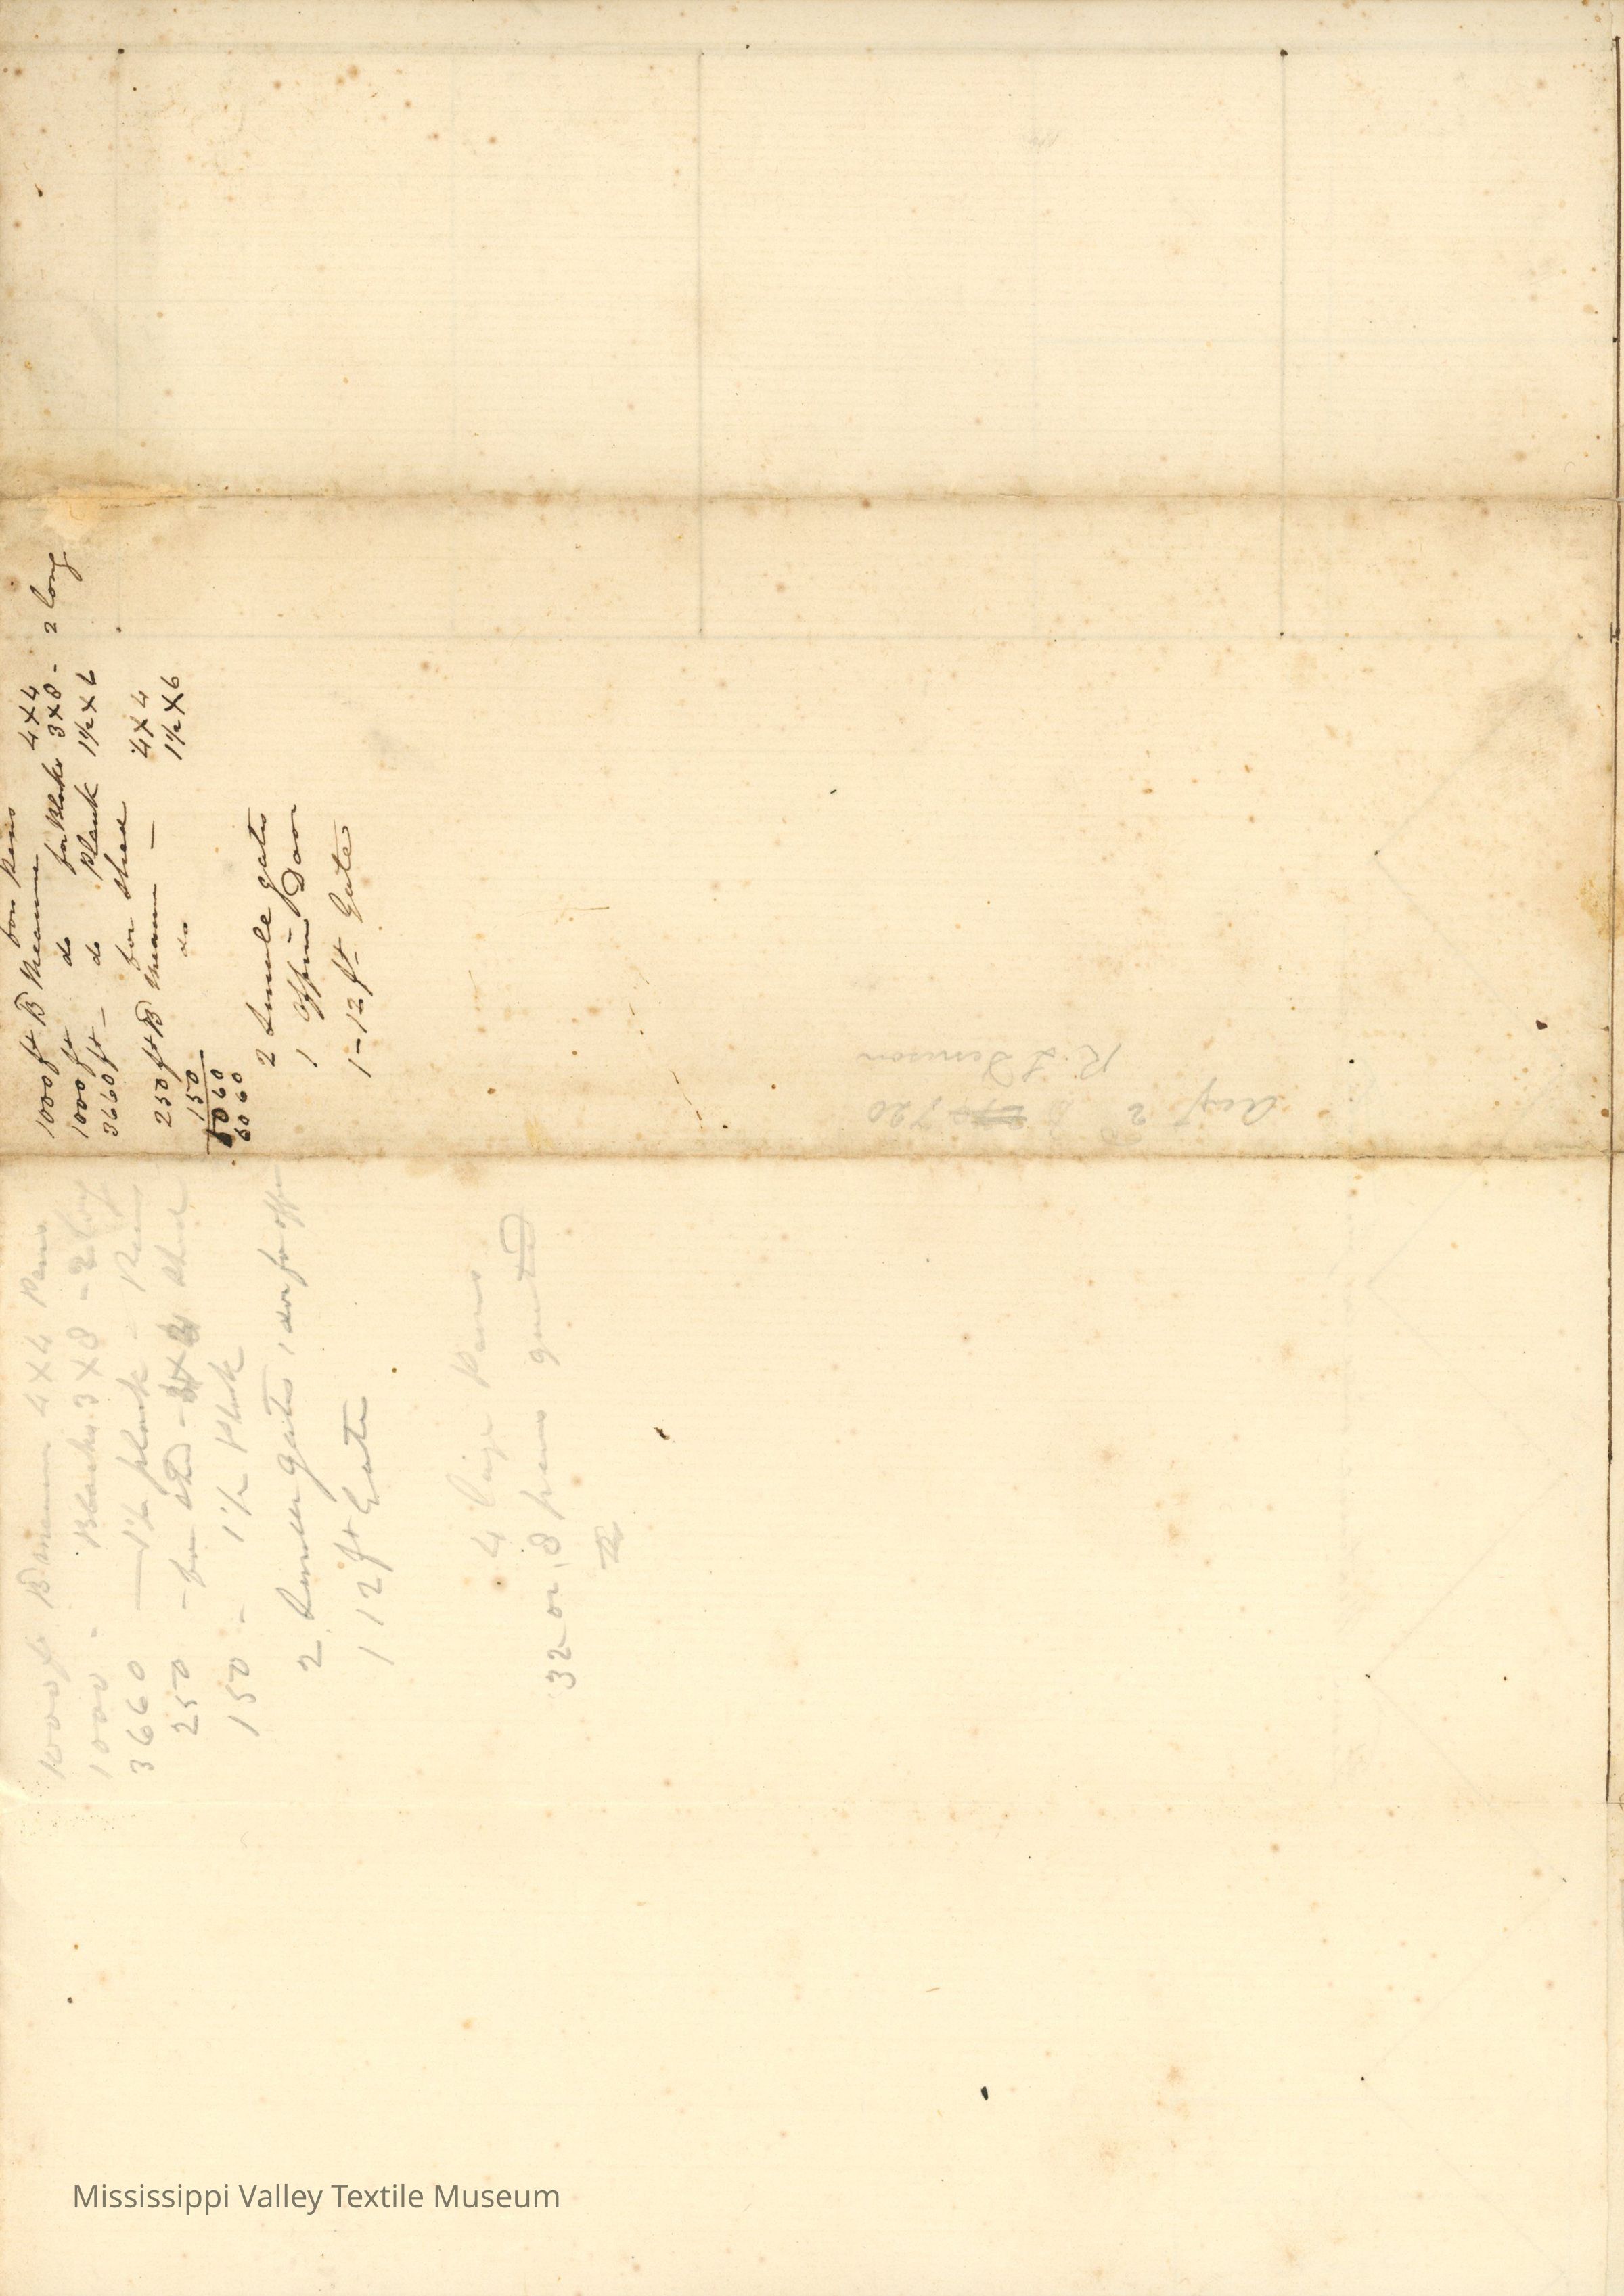 for Pens
1000 ft B Measure 4 X 4
1000 ft do for Blocks 3 X 8 - 2 long
3660 ft - do Plank 1½ X 6
for Shed
250 ft B Measure — 4 X 4
150 do 1½ X 6
6060
6060
2 Double gates
1 Office Door
1 - 12 ft Gate
1000 ft B Measure 4 X 4 Pens
1000 - Blocks 3 X 8 - 2 long
3660 — 1½ plank - Pens
250 - for Shed
150 - 1½ Plank
2 Double gates 1 do for off
1 12 ft Gate
4 large Pens
32 or 8 pens
2 720
R.
Mississippi Valley Textile Museum